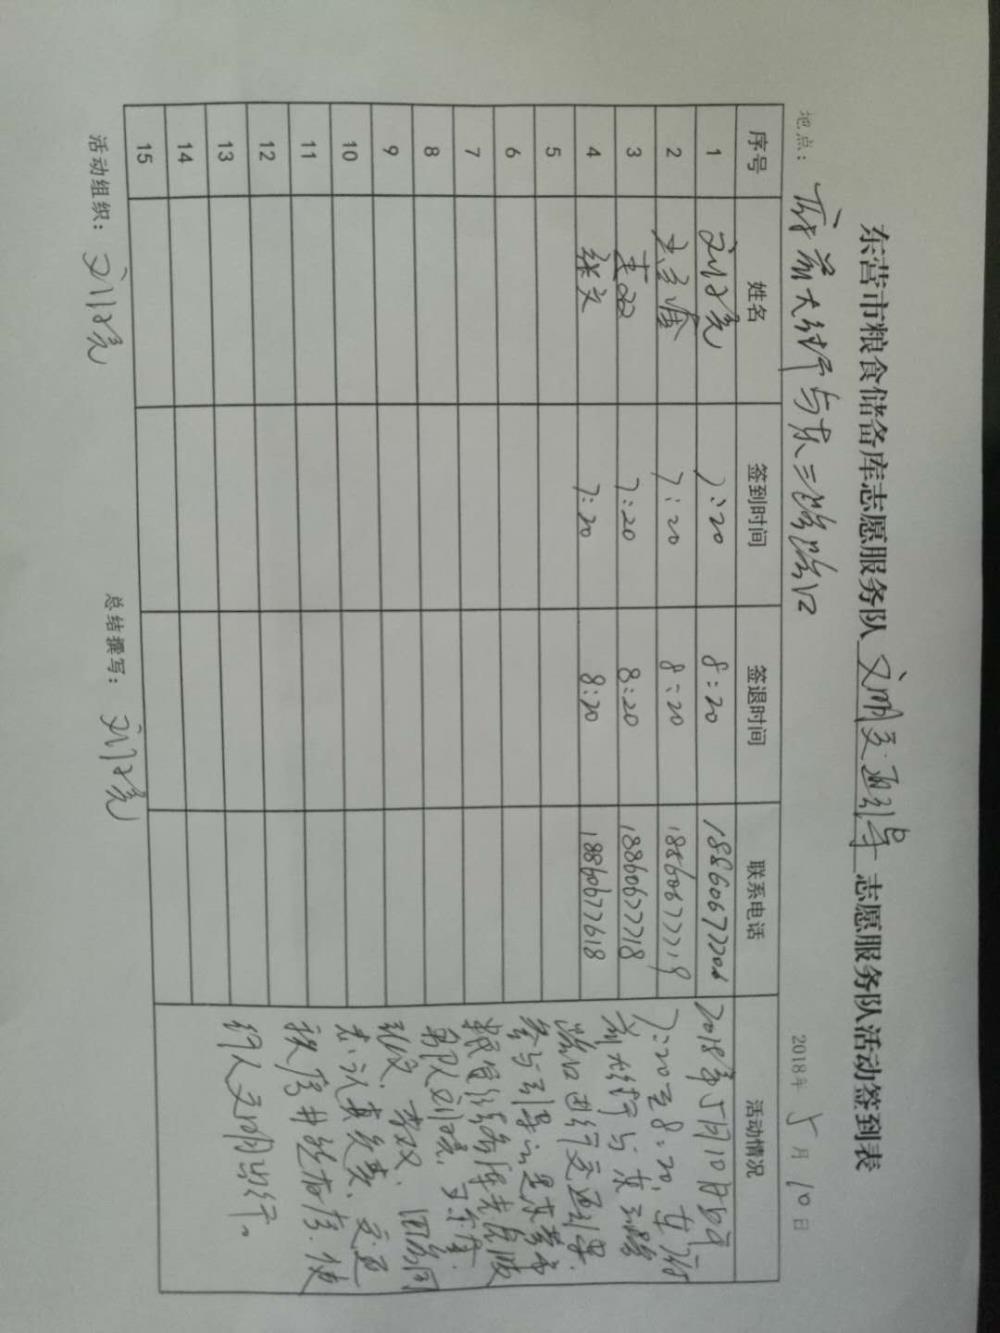 东营市粮食储备库志愿服务队文明交通引导志愿服务队活动签到表
地点：府前大街与东三路路口 2018年5月10日
序号 姓名 签到时间 签退时间 联系电话 活动情况
1 7:20 8:20
2 7:20 8:20 18860677719
3 李双 7:20 8:20 18860677718
4 张文 7:20 8:20 18860677618
5
6
7
8
9
10
11
12
13
14
15
2018年5月10日
7:20至8:20,在府
前大街与东三路
路口进行交通引导.
参与引导的是东营市
粮食储备库志愿服
务队
张文、李双、四名同
志,认真负责、交通
秩序井然有序.使
行人文明出行。
活动组织：
总结撰写：